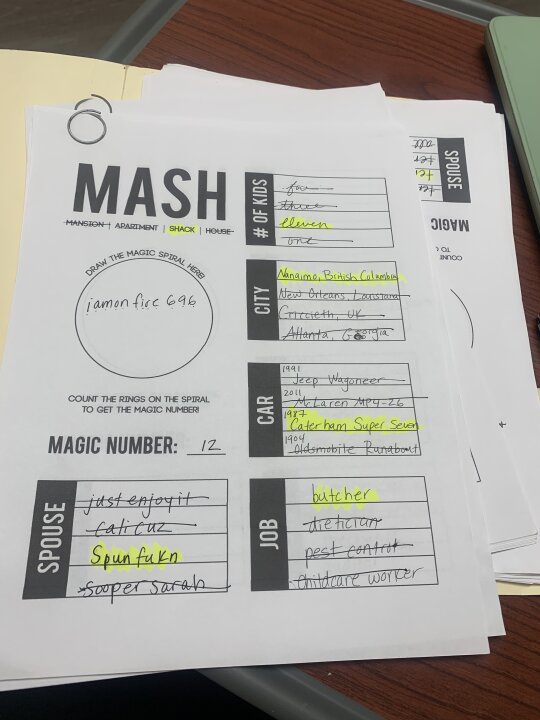 MASH
MANSION | APARTMENT | SHACK | HOUSE
DRAW THE MAGIC SPIRAL HERE!
iamonfire696
COUNT THE RINGS ON THE SPIRAL
TO GET THE MAGIC NUMBER!
MAGIC NUMBER: 12
# OF KIDS
four
three
eleven
one
CITY
Nanaimo, British Columbia
New Orleans, Louisiana
Criccieth, UK
Atlanta, Georgia
CAR
1991
Jeep Wagoneer
2011
McLaren MP4-26
1987
Caterham Super Seven
1904
Oldsmobile Runabout
SPOUSE
just enjoy it
cali cuz
Spunfukn
sooper sarah
JOB
butcher
dietician
pest control
childcare worker
SPOUSE
MAGIC
COUNT
TO G